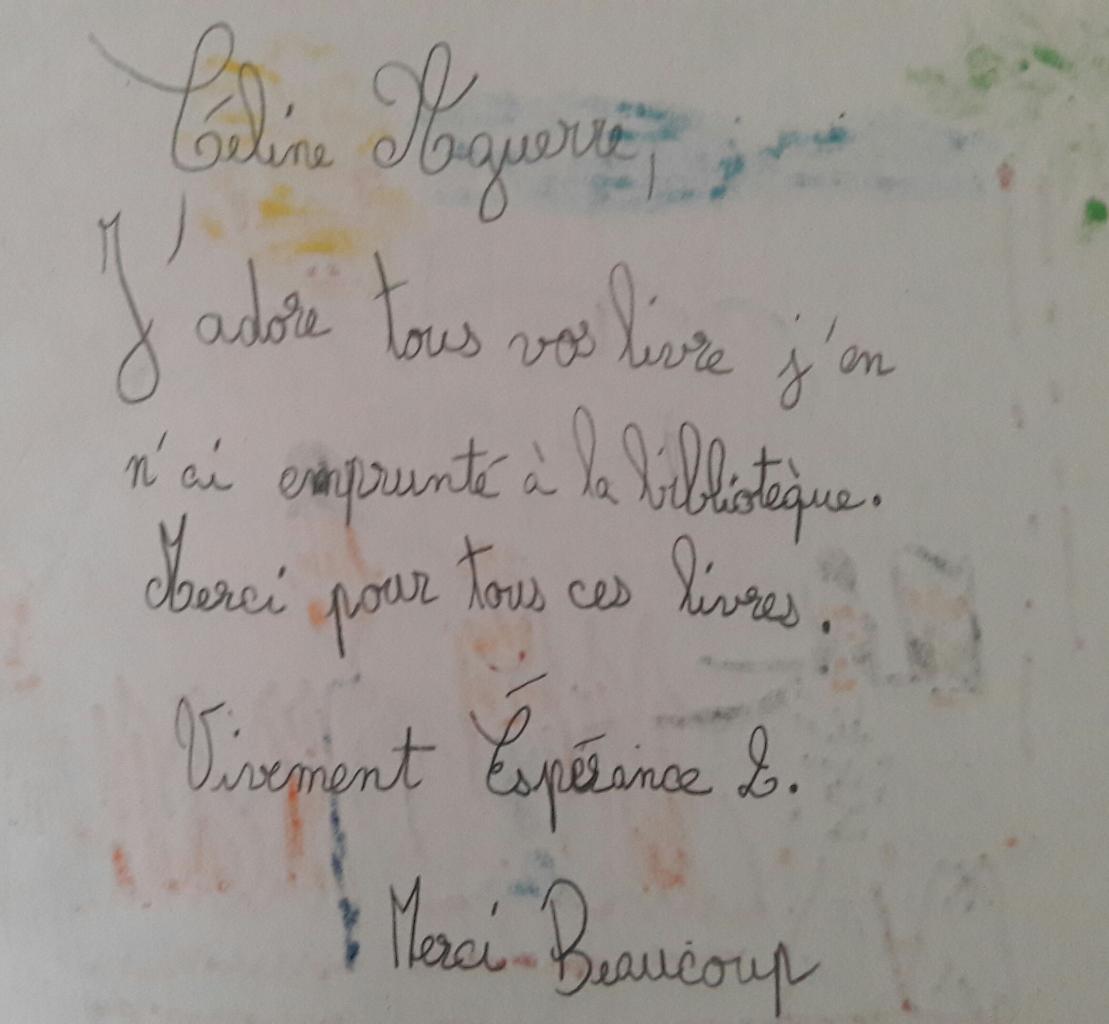 Céline
J'adore tous vos livre j'en
n'ai emprunté à la bibliotèque.
Merci pour tous ces livres.
Vivement Éspérance 2.
Merci Beaucoup